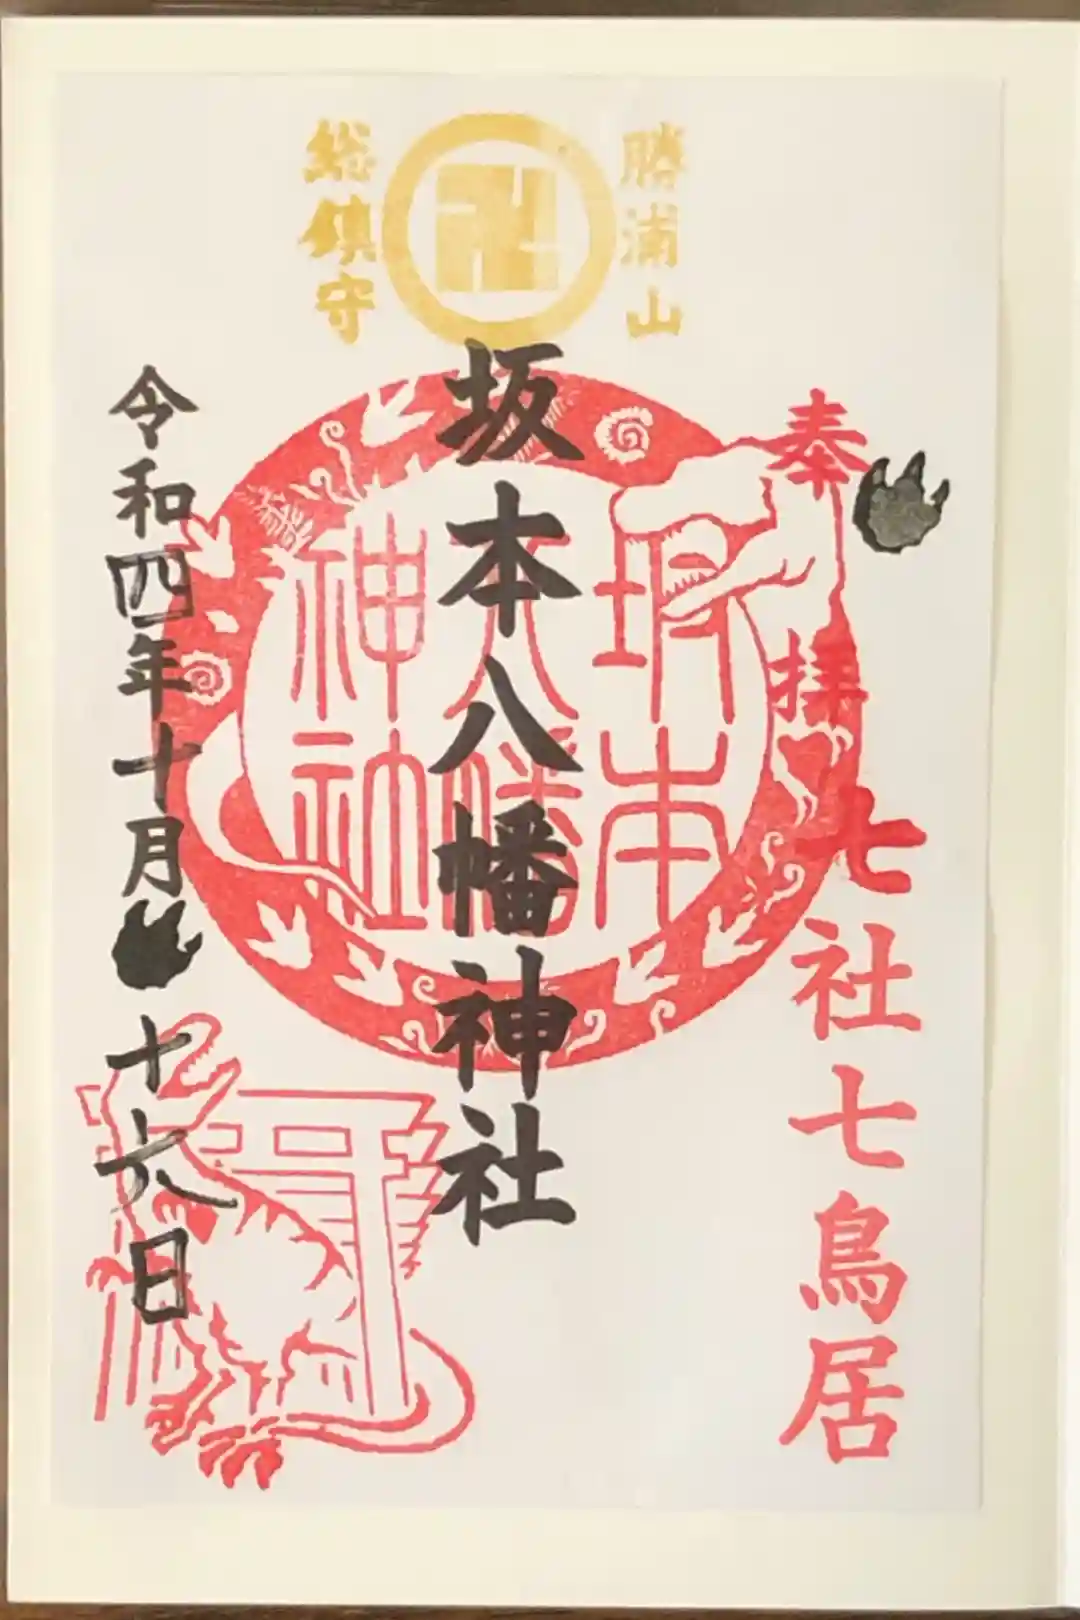 勝浦山
総鎮守
奉拝
七社七鳥居
坂本八幡神社
坂本
八幡
神社
令和四年十月十六日